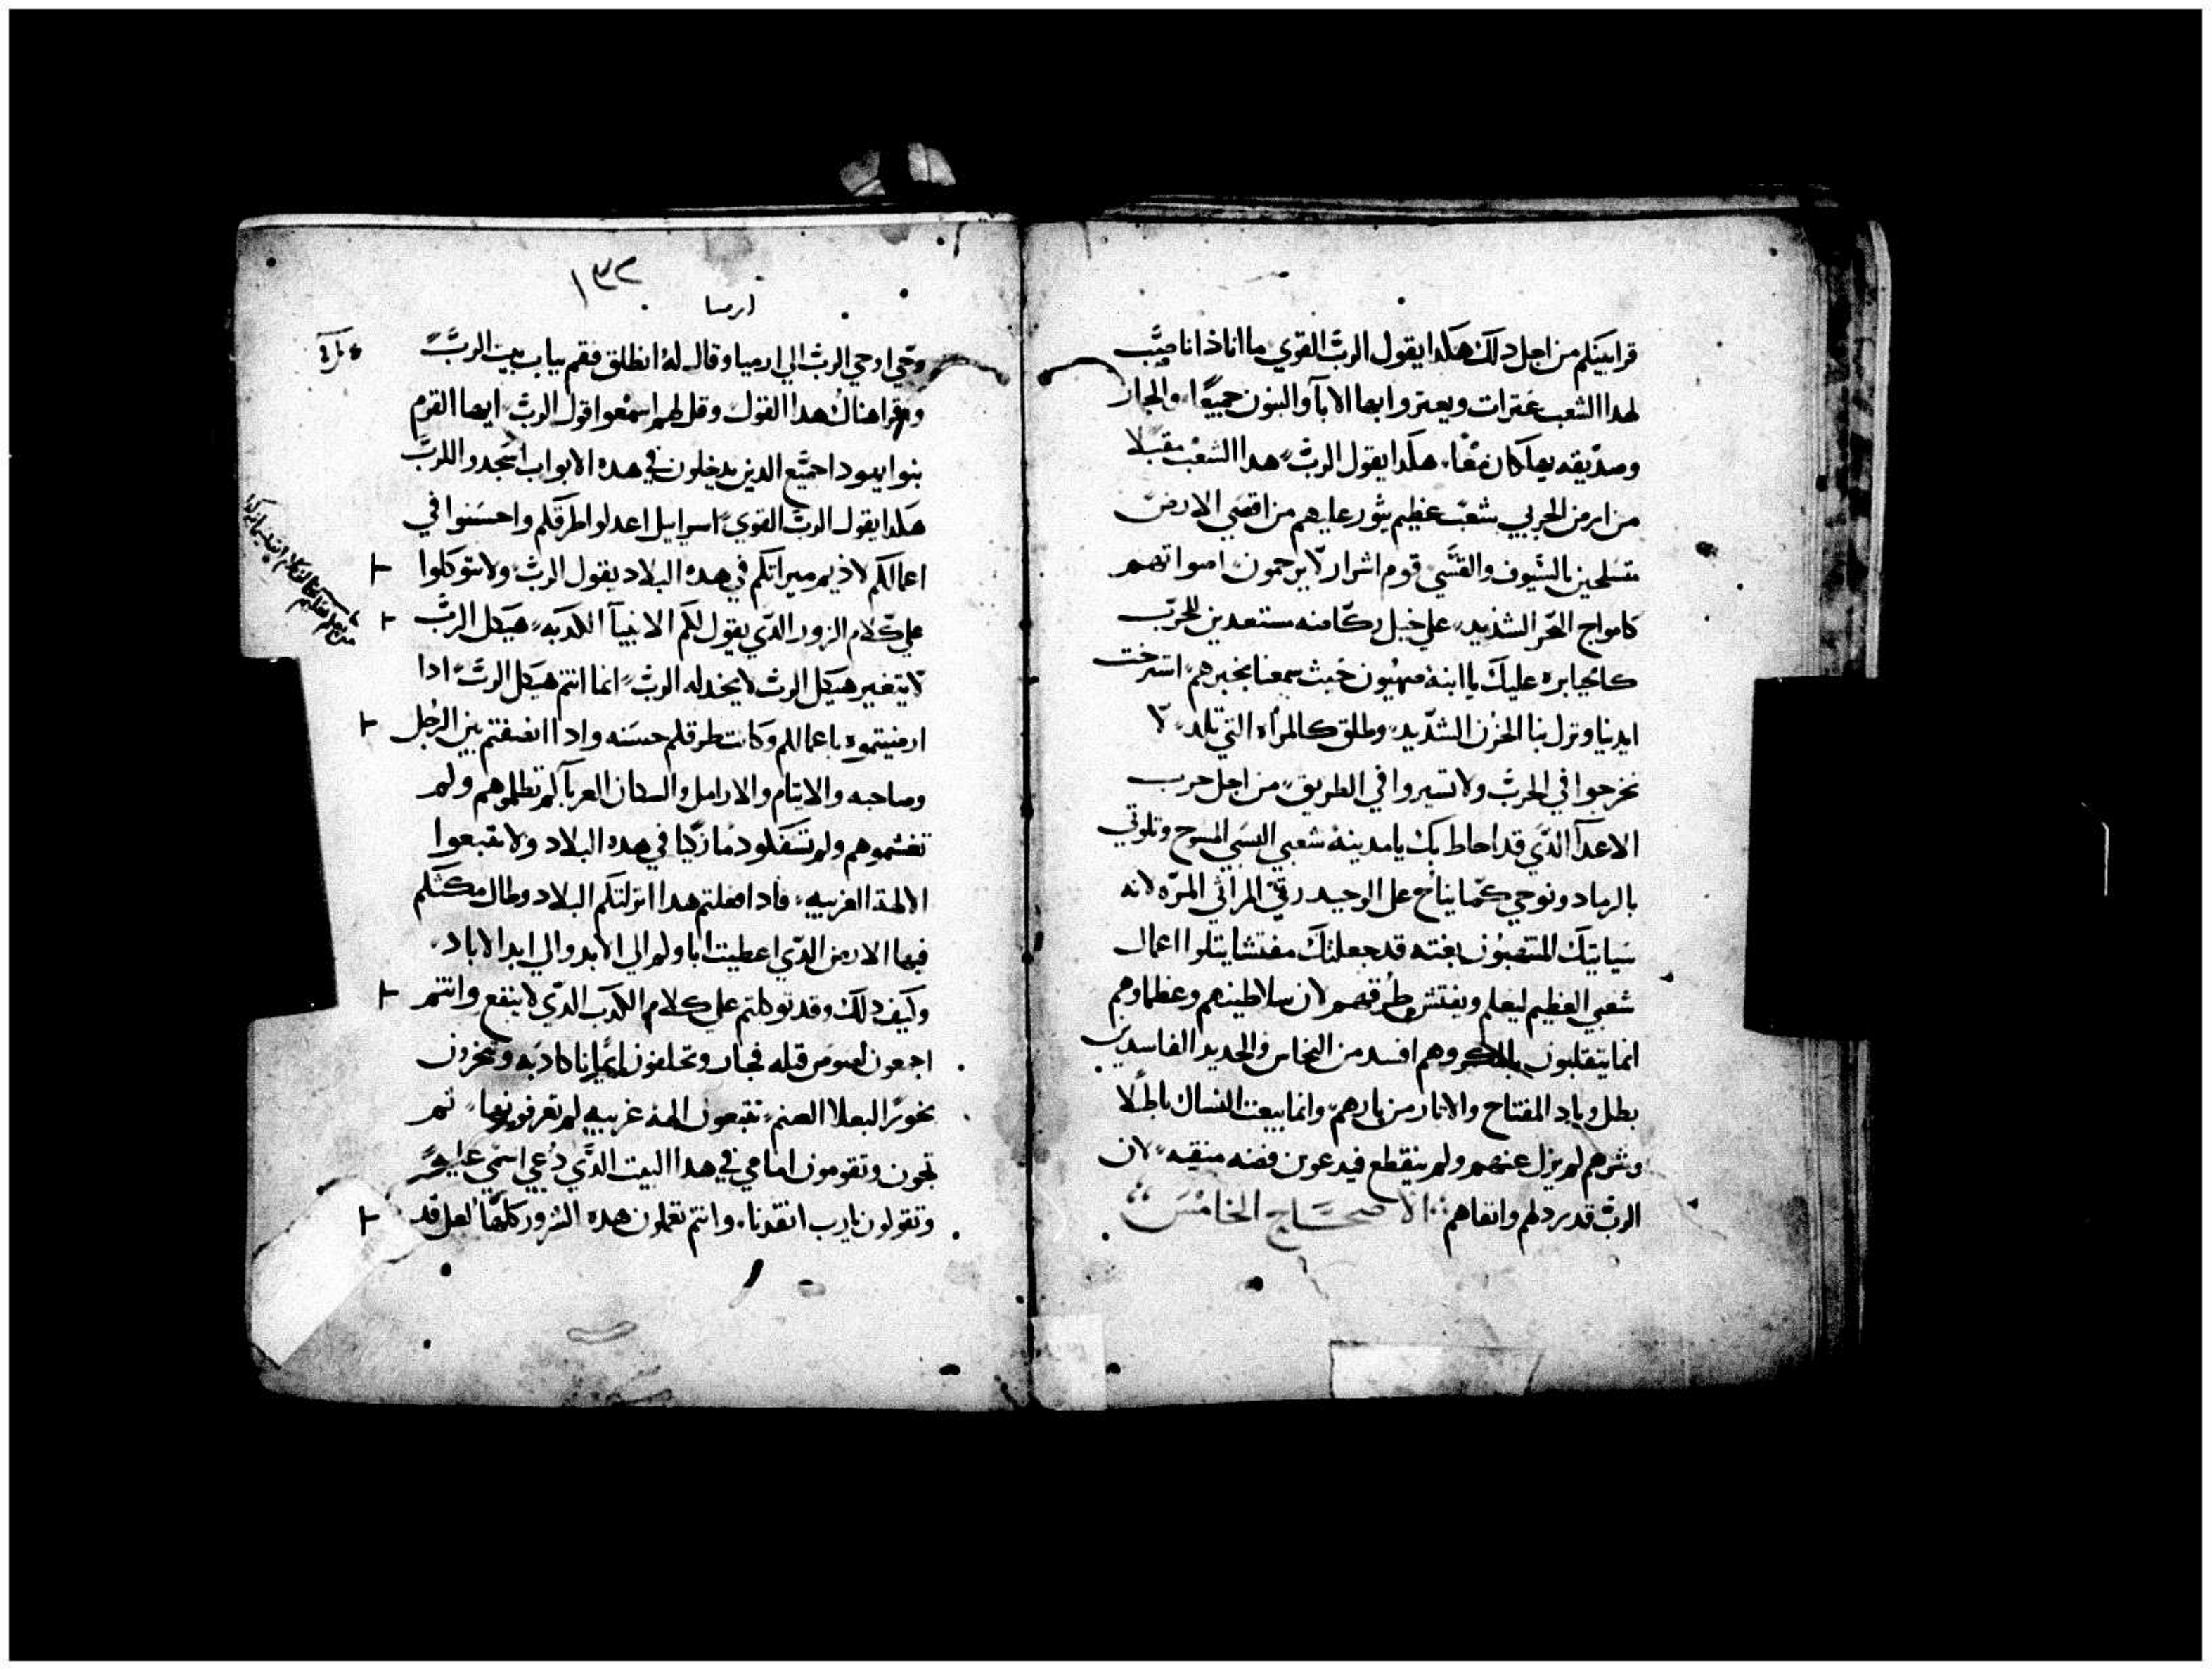 قرابينكم من اجل دلك هكدا يقول الرب القوي ها انا ذا ناصب
لهدا الشعب عترات ويعتروا بها الابا والبنون جميعًا والجار
وصديقه يهلكان معًا هكدا يقول الرب هدا الشعب مقبلا
من ارض الجربي شعب عظيم يثور عليهم من اقصي الارض
متسلحين بالسيوف والقسي قوم اشرار لا يرحمون اصواتهم
كامواج البحر الشديد علي خيل ركامنه مستعدين للحرب
كالجبابره عليك يا ابنة صهيون خبث سمعنا بخبرهم استرخت
ايدنا ونزل بنا الحزن الشديد وطلق كالمراه التي تلد لا
تخرجوا في الحرث ولا تسيروا في الطريق من اجل حرب
الاعدآ الدي قد احاط بك يا مدينة شعبي البسي المسوح وتلوتي
بالرماد ونوحي كما يناح علي الوحيد رقي المراثي المره لانه
سياتيك المتعصبون بغته قد جعلتك مفتشا يتلوا اعمال
شعبي العظيم ليعلم ويفتش طرقهم لان سلاطينهم وعظماوهم
انما يتقلبون بالمكر وهم افسد من النحاس والحديد الفاسدين
بطل وباد المفتاح والانار من نارهم وانما يبعت السباك باطلا
وشرهم لم يزل عنهم ولم ينقطع فيدعون فضه منقيه لان
الرب قد ردلهم وانفاهم الاصحاح الخامس
١٣٢
ارميا
وحي اوحي الرب الي ارميا وقال له انطلق فقم بباب بيت الرب
واقرا هناك هدا القول وقل لهم اسمعوا قول الرب ايها القوم
بنوا يهودا جميع الدين يدخلون في هده الابواب اسجدوا للرب
هكدا يقول الرب القوي اسراييل اعدلوا طرقكم واحسنوا في
اعمالكم لاديم ميراتكم في هده البلاد يقول الرب ولا تتوكلوا
علي كلام الزور الدي يقول لكم الانبيآ الكدبه هيكل الرب
لا يتغير هيكل الرب لا يخدله الرب انما انتم هيكل الرب ادا
ارضيتموه باعمالكم وكانت طرقكم حسنه وادا انصفتم بين الرجل
وصاحبه والايتام والارامل والسكان الغربآ لم تظلموهم ولم
تغشموهم ولم تسفكوا دمًا زكيا في هده البلاد ولا تتبعوا
الالهة الغريبه فادا فعلتم هدا انزلتكم البلاد وطال مكثكم
فيها الارض الدي اعطيت اباوكم الي الابد والي ابد الاباد
وكيف دلك وقد توكلتم علي كلام الكدب الدي لا ينفع وانتم
اجمعون لصوص قتله فجار وتحلفون ايمانا كادبه وتبخرون
بخورًا لبعلا الصنم تتبعون الهة غريبه لم تعرفونها تم
تجون وتقومون امامي في هدا البيت الدي دعي اسمي عليه
وتقولون يا رب انقدنا وانتم تعملون هده الشرور كلها لعل قد